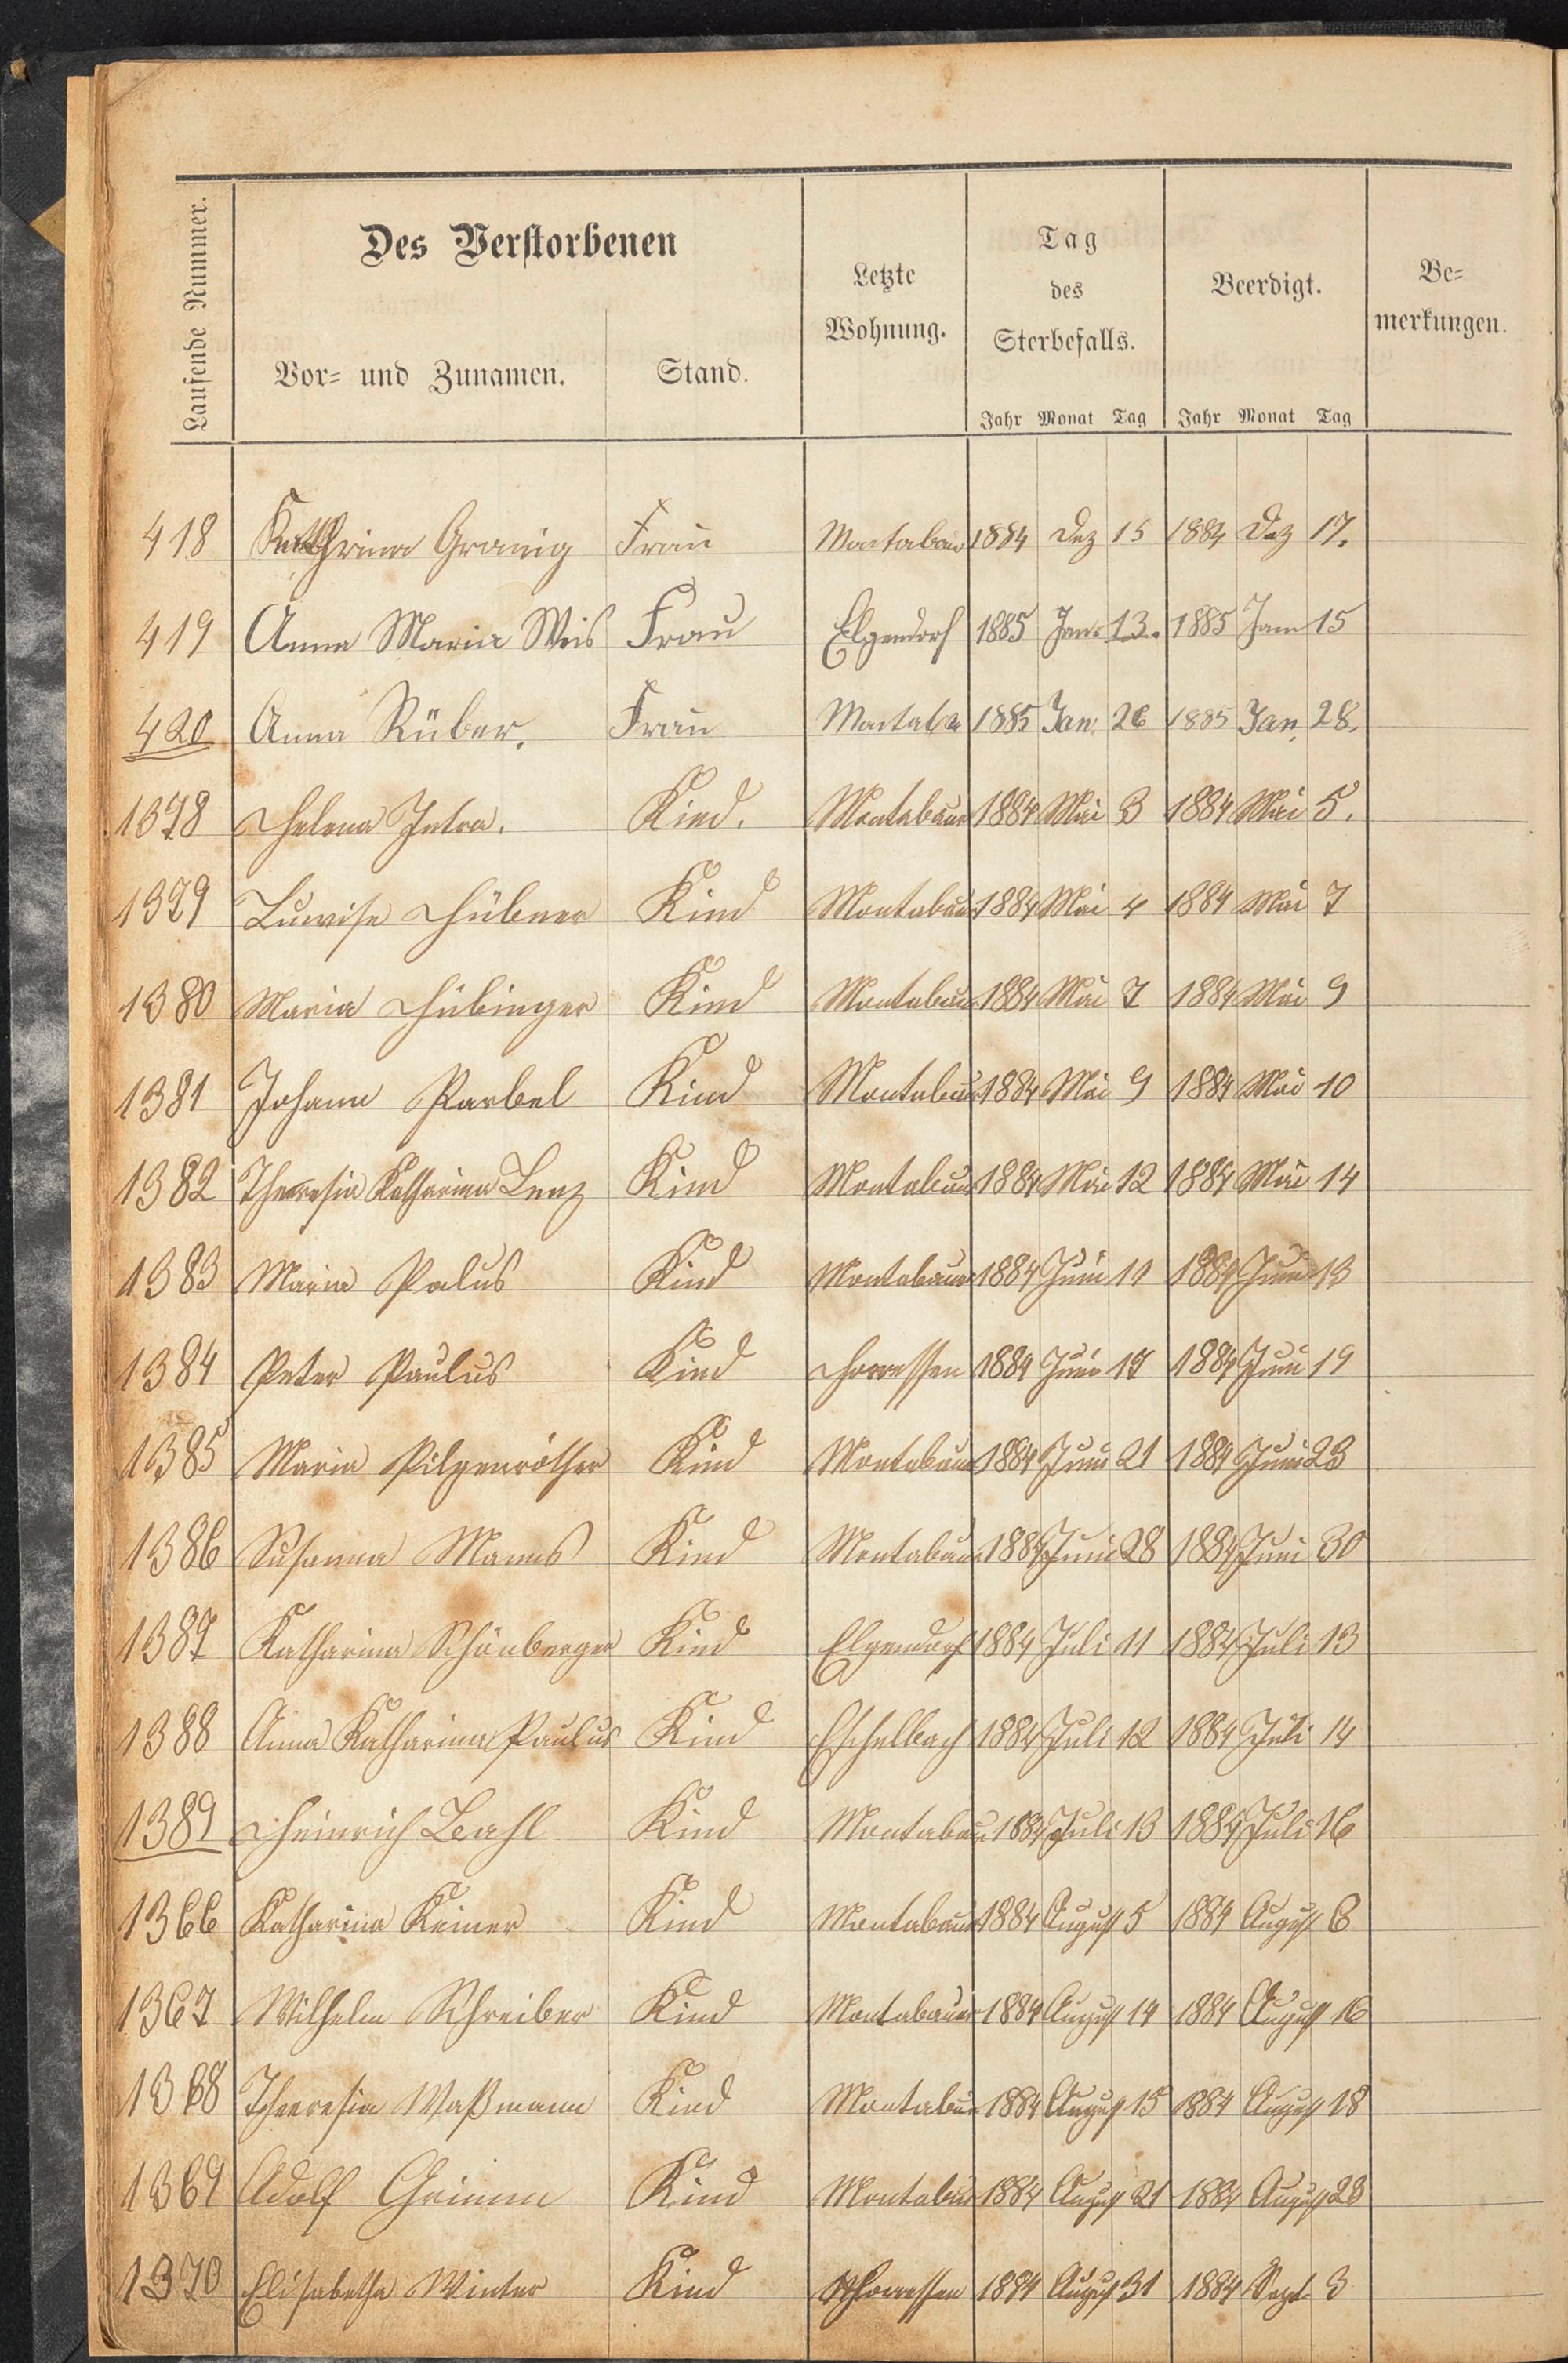 Laufende Nummer.
Des Verstorbenen
Vor= und Zunamen.
Stand.
Letzte
Wohnung.
Tag
des
Sterbefalls.
Beerdigt.
Be=
merkungen.
Jahr Monat Tag Jahr Monat Tag
418 Frau 1884 Dez 15 1884 Dez 17.
419 Anna Maria Weis Frau Elgendorf 1885 Jan. 13. 1885 Jan 15
420 Anna Rüber. Frau 1885 Jan. 26 1885 Jan. 28.
1378 Helena Intra. Kind. Montabaur 1884 Mai 3 1884 Mai 5.
1379 Luwise Hübner Kind Montabaur 1884 Mai 4 1884 Mai 7
1380 Maria Hübinger Kind Montabaur 1884 Mai 7 1884 Mai 9
1381 Johann Parbel Kind Montabaur 1884 Mai 9 1884 Mai 10
1382 Theresia Katharina Lenz Kind Montabaur 1884 Mai 12 1884 Mai 14
1383 Maria Palus Kind Montabaur 1884 Juni 11 1884 Juni 13
1384 Peter Paulus Kind Horressen 1884 Juni 17 1884 Juni 19
1385 Maria Pilgenröther Kind Montabaur 1884 Juni 21 1884 Juni 23
1386 Susanna Manns Kind Montabaur 1884 Juni 28 1884 Juni 30
1387 Katharina Schönberger Kind Elgendorf 1884 Juli 11 1884 Juli 13
1388 Anna Katharina Paulus Kind Eschelbach 1884 Juli 12 1884 Juli 14
1389 Heinrich Bahl Kind Montabaur 1884 Juli 13 1884 Juli 16
1366 Katharina Keiner Kind Montabaur 1884 August 5 1884 August 6
1367 Wilhelm Schreiber Kind Montabaur 1884 August 14 1884 August 16
1368 Theresia Waßmann Kind Montabaur 1884 August 15 1884 August 18
1369 Adolf Grimm Kind Montabaur 1884 August 21 1884 August 23
1370 Elisabetha Winter Kind Horressen 1884 August 31 1884 Sept. 3